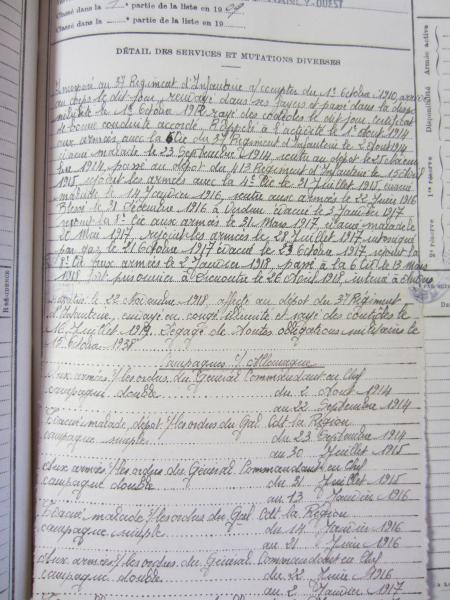 Classé dans la 2e partie de la liste en 19
Classé dans la partie de la liste en 19
DÉTAIL DES SERVICES ET MUTATIONS DIVERSES
Incorporé au 37 Régiment d'Infanterie à compter du 1er Octobre 1910, arrivé
au corps le dit jour,
militaire le 1er Octobre 1912 rayé des contrôles le dit jour certificat
de bonne conduite accordé. Rappelé à l'activité le 1er Août 1914
aux armées avec la 6e Cie du 37 Régiment d'Infanterie le 2 Août 1914
évacué malade le 23 Septembre 1914, rentré au dépôt le
1914, passé au dépôt du 413 Régiment d'Infanterie le 15 Avril
1915, rejoint les armées avec la 4e Cie le 31 Juillet 1915, évacué
malade le 14 Janvier 1916, rentré aux armées le 22 Juin 1916
Blessé le 31 Décembre 1916 à Verdun évacué le 3 Janvier 1917
rejoint la Cie aux armées le 31 Mars 1917, évacué malade le
Mai 1917, rejoint les armées le 28 Juillet 1917 intoxiqué
par gaz le 21 Octobre 1917 évacué le 23 Octobre 1917, rejoint la
Cie aux armées le 2 Janvier 1918, passé à la 6 Cie le 13 Mars
1918 fait prisonnier le 26 Avril 1918, interné à
Rapatrié le 22 Novembre 1918, affecté au dépôt du 37 Régiment
d'Infanterie, envoyé en congé illimité et rayé des contrôles le
16 Juillet 1919. Dégagé de toutes obligations militaires le
15 Octobre 1938
Campagnes c/ Allemagne
Aux armées s/ les ordres du Général Commandant en Chef
campagne double du 2 Août 1914
au 22 Septembre 1914
Evacué malade, dépôt s/ les ordres du Gal Cdt la Région
campagne simple du 23 Septembre 1914
au 30 Juillet 1915
Aux armées s/ les ordres du Général Commandant en Chef
campagne double du 31 Juillet 1915
au 13 Janvier 1916
Evacué malade s/ les ordres du Gal Cdt la Région
campagne simple du 14 Janvier 1916
au 21 Juin 1916
Aux armées s/ les ordres du Général Commandant en Chef
campagne double du 22 Juin 1916
au 2 Janvier 1917
RÉSIDENCE
Armée active
Disponibilité
1re réserve
2e réserve